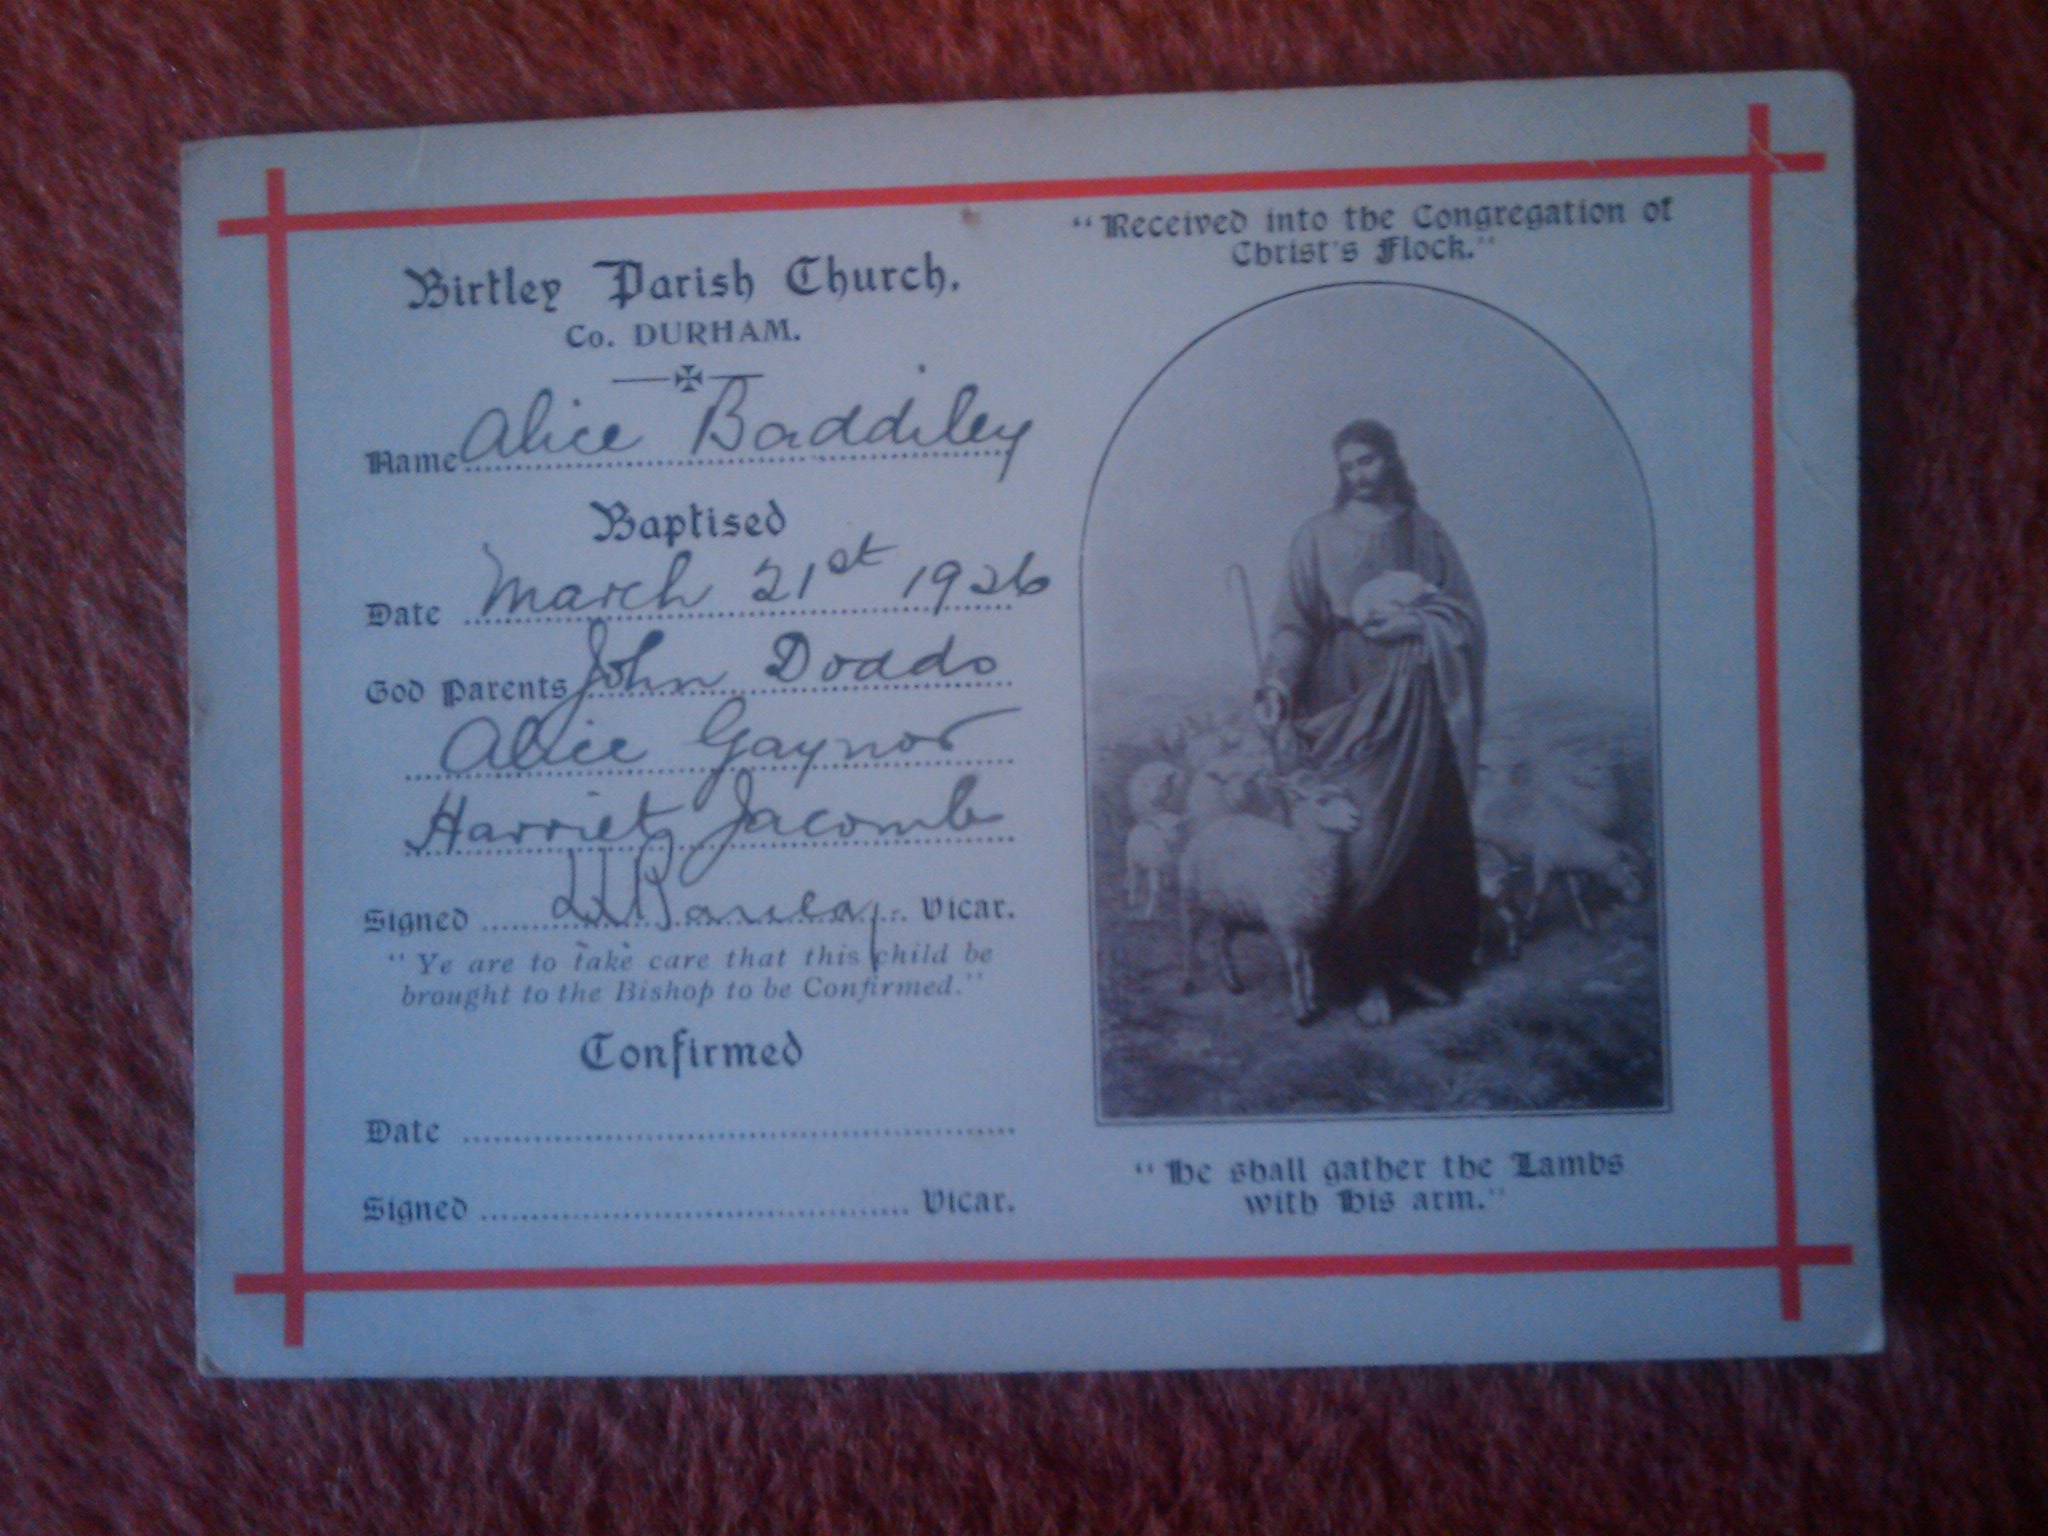 Birtley Parish Church.
Co. DURHAM.
Name Alice Baddiley
Baptised
Date March 21st 1926
God Parents John Dodds
Alice Gaynor
Harriet Jacomb
Signed Vicar.
"Ye are to take care that this child be
brought to the Bishop to be Confirmed."
Confirmed
Date
Signed Vicar.
"Received into the Congregation of
Christ's Flock."
"He shall gather the Lambs
with His arm."